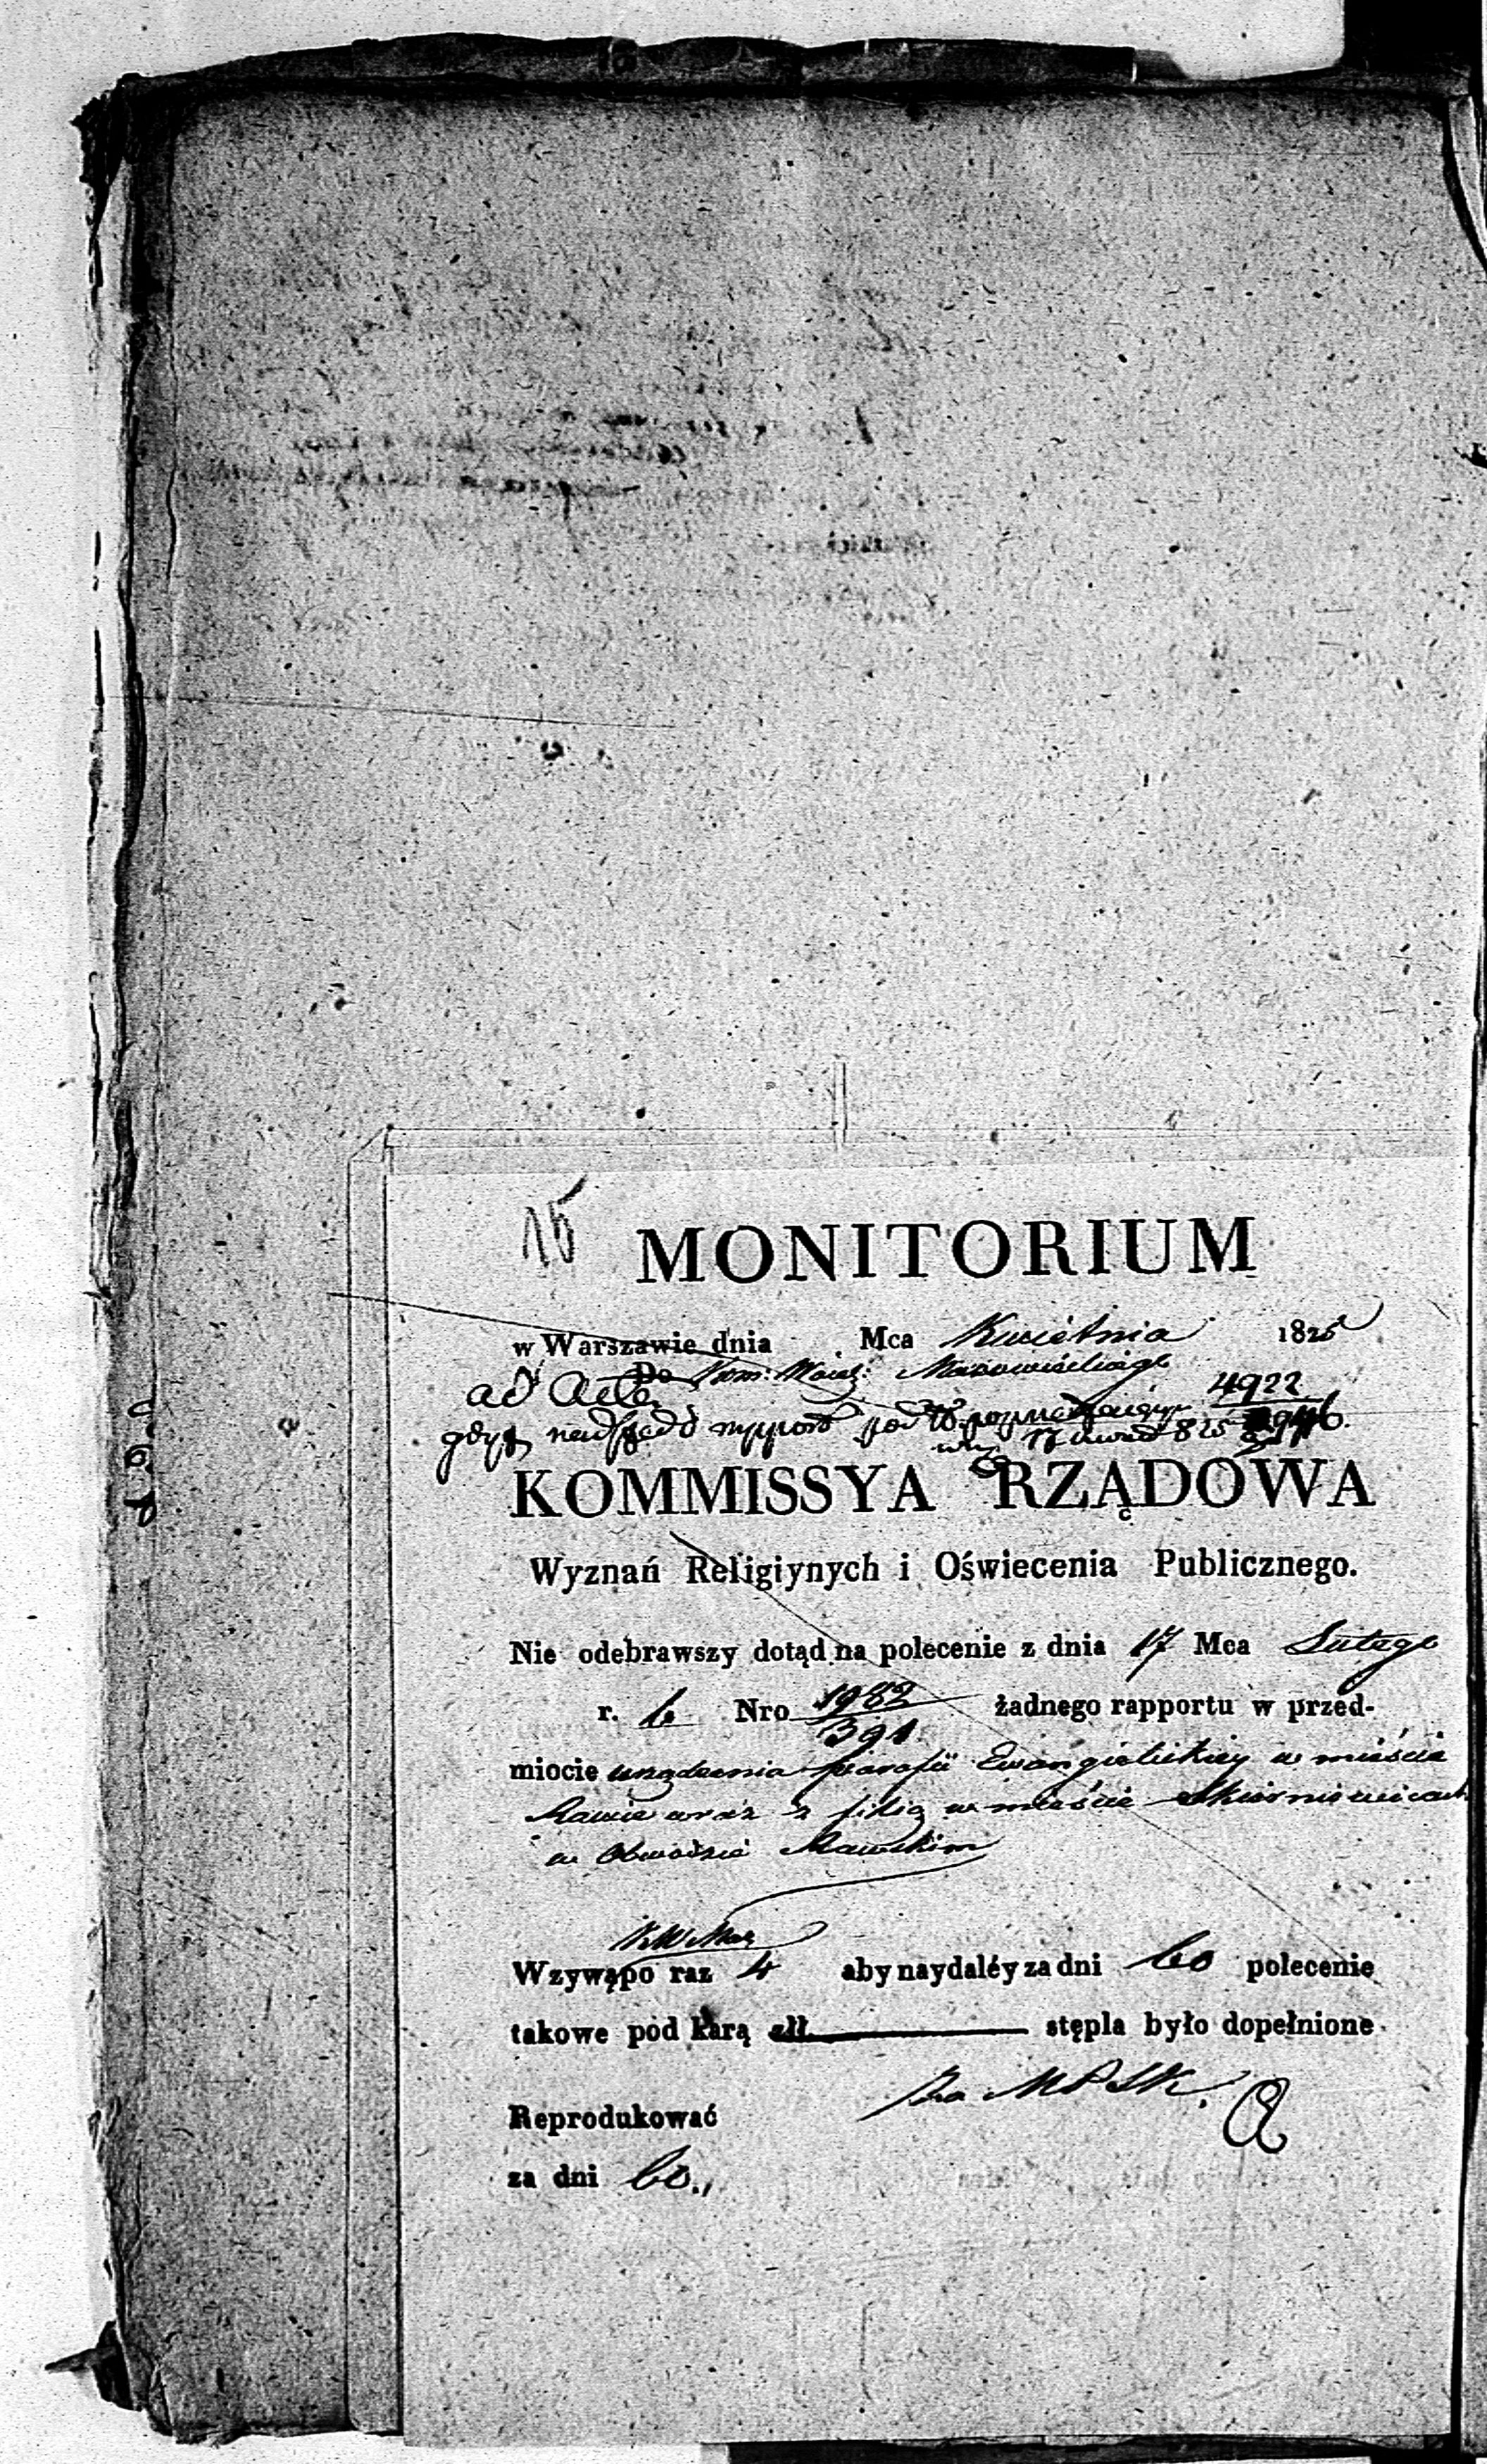 15
MONITORIUM
w Warszawie dnia Mca Kwietnia 1825
Do Kom: Woiew: Mazowieckiego
ad Acta
4922
gdyż nadszedł rapport pod
825
KOMMISSYA RZĄDOWA
Wyznań Religiynych i Oświecenia Publicznego.
Nie odebrawszy dotąd na polecenie z dnia 17 Mca Lutego
r. b. Nro 1982/391 żadnego rapportu w przed-
miocie urządzenia parafii Ewangielickiey w mieście
Rawie wraz z filią w mieście Skierniewicach
w Obwodzie Rawskim
KW Maz
Wzywa po raz 4 aby naydaléy za dni 60 polecenie
takowe pod karą złł. stępla było dopełnione
Reprodukować
za dni 60.